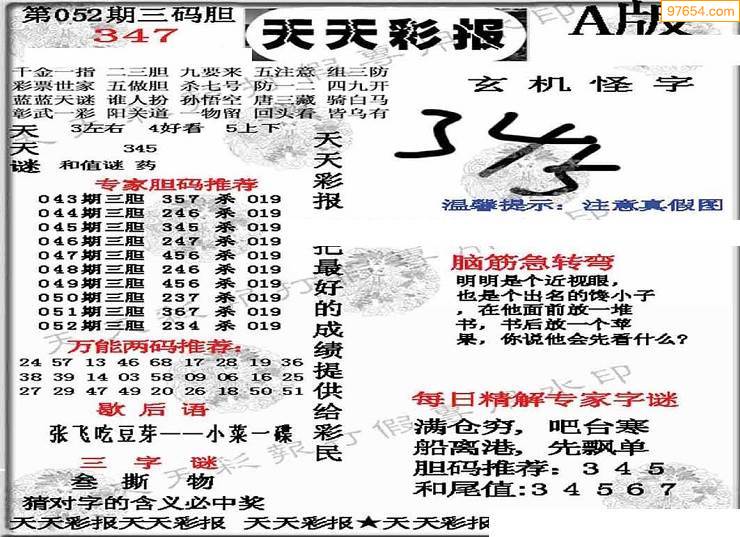 第052期三码胆
347
天天彩报
A版
97654.com
千金一指 二三胆 九要来 五注意 组三防
彩票世家 五做胆 杀七号 防一二 四九开
蓝蓝天谜 谁人扮 孙悟空 唐三藏 骑白马
彰武一彩 阳关道 一物留 回头看 皆乌有
天 3左右 4好看 5上下
天 345
谜 和值谜 药
专家胆码推荐
043期三胆 357 杀 019
044期三胆 246 杀 019
045期三胆 345 杀 019
046期三胆 247 杀 019
047期三胆 456 杀 019
048期三胆 246 杀 019
049期三胆 456 杀 019
050期三胆 237 杀 019
051期三胆 367 杀 019
052期三胆 234 杀 019
万能两码推荐:
24 57 13 46 68 17 28 19 36
38 39 14 03 58 09 06 16 25
27 29 47 49 20 26 18 50 51
歇后语
张飞吃豆芽——小菜一碟
三字谜
叁撕物
猜对字的含义必中奖
天天彩报
把最好的成绩提供给彩民
玄机怪字
345
温馨提示: 注意真假图
脑筋急转弯
明明是个近视眼,
也是个出名的馋小子
,在他面前放一堆
书,书后放一个苹
果,你说他会先看什么?
每日精解专家字谜
满仓穷,吧台寒
船离港,先飘单
胆码推荐: 3 4 5
和尾值:3 4 5 6 7
天天彩报天天彩报 天天彩报★天天彩报